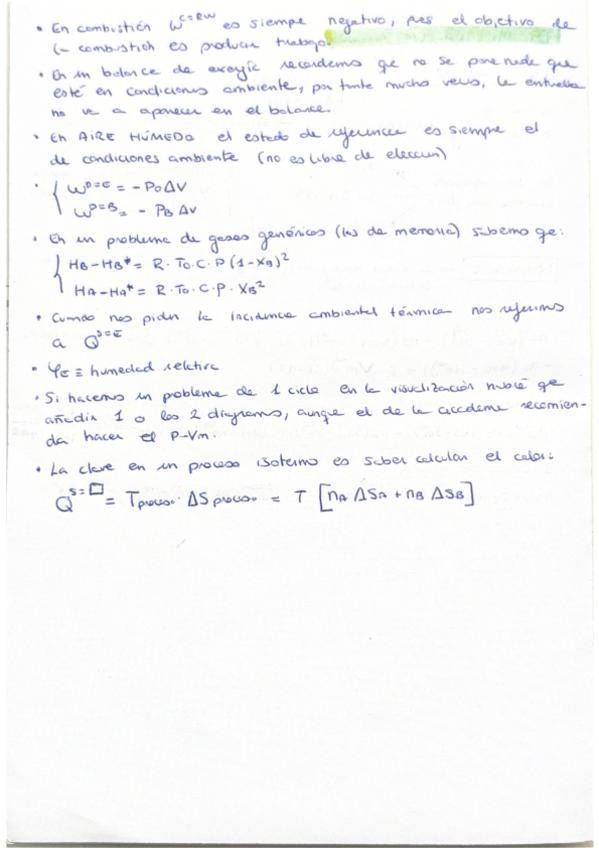 • En combustión W^C=RW es siempre negativo, pues el objetivo de
la combustión es producir trabajo.
• En un balance de exergía recordemos que no se pone nada que
esté en condiciones ambiente, por tanto muchas veces, la entrada
no va a aparecer en el balance.
• En AIRE HÚMEDO el estado de referencia es siempre el
de condiciones ambiente (no es libre de elección)
• { W^D=E = - P₀ΔV
W^D=B = - P_B ΔV
• En un problema de gases genéricos (los de memoria) sabemos que:
{ H_B - H_B* = R · T₀ · C · P (1 - X_B)²
H_A - H_A* = R · T₀ · C · P · X_B²
• Cuando nos piden la incidencia ambiental térmica nos referimos
a Q^S=E
• φ_E ≡ humedad relativa
• Si hacemos un problema de 1 ciclo en la visualización habrá que
añadir 1 o los 2 diagramas, aunque el de la academia recomien-
da hacer el P-Vm.
• La clave en un proceso isotermo es saber calcular el calor:
Q^S=□ = T proceso · ΔS proceso = T [n_A ΔS_A + n_B ΔS_B]